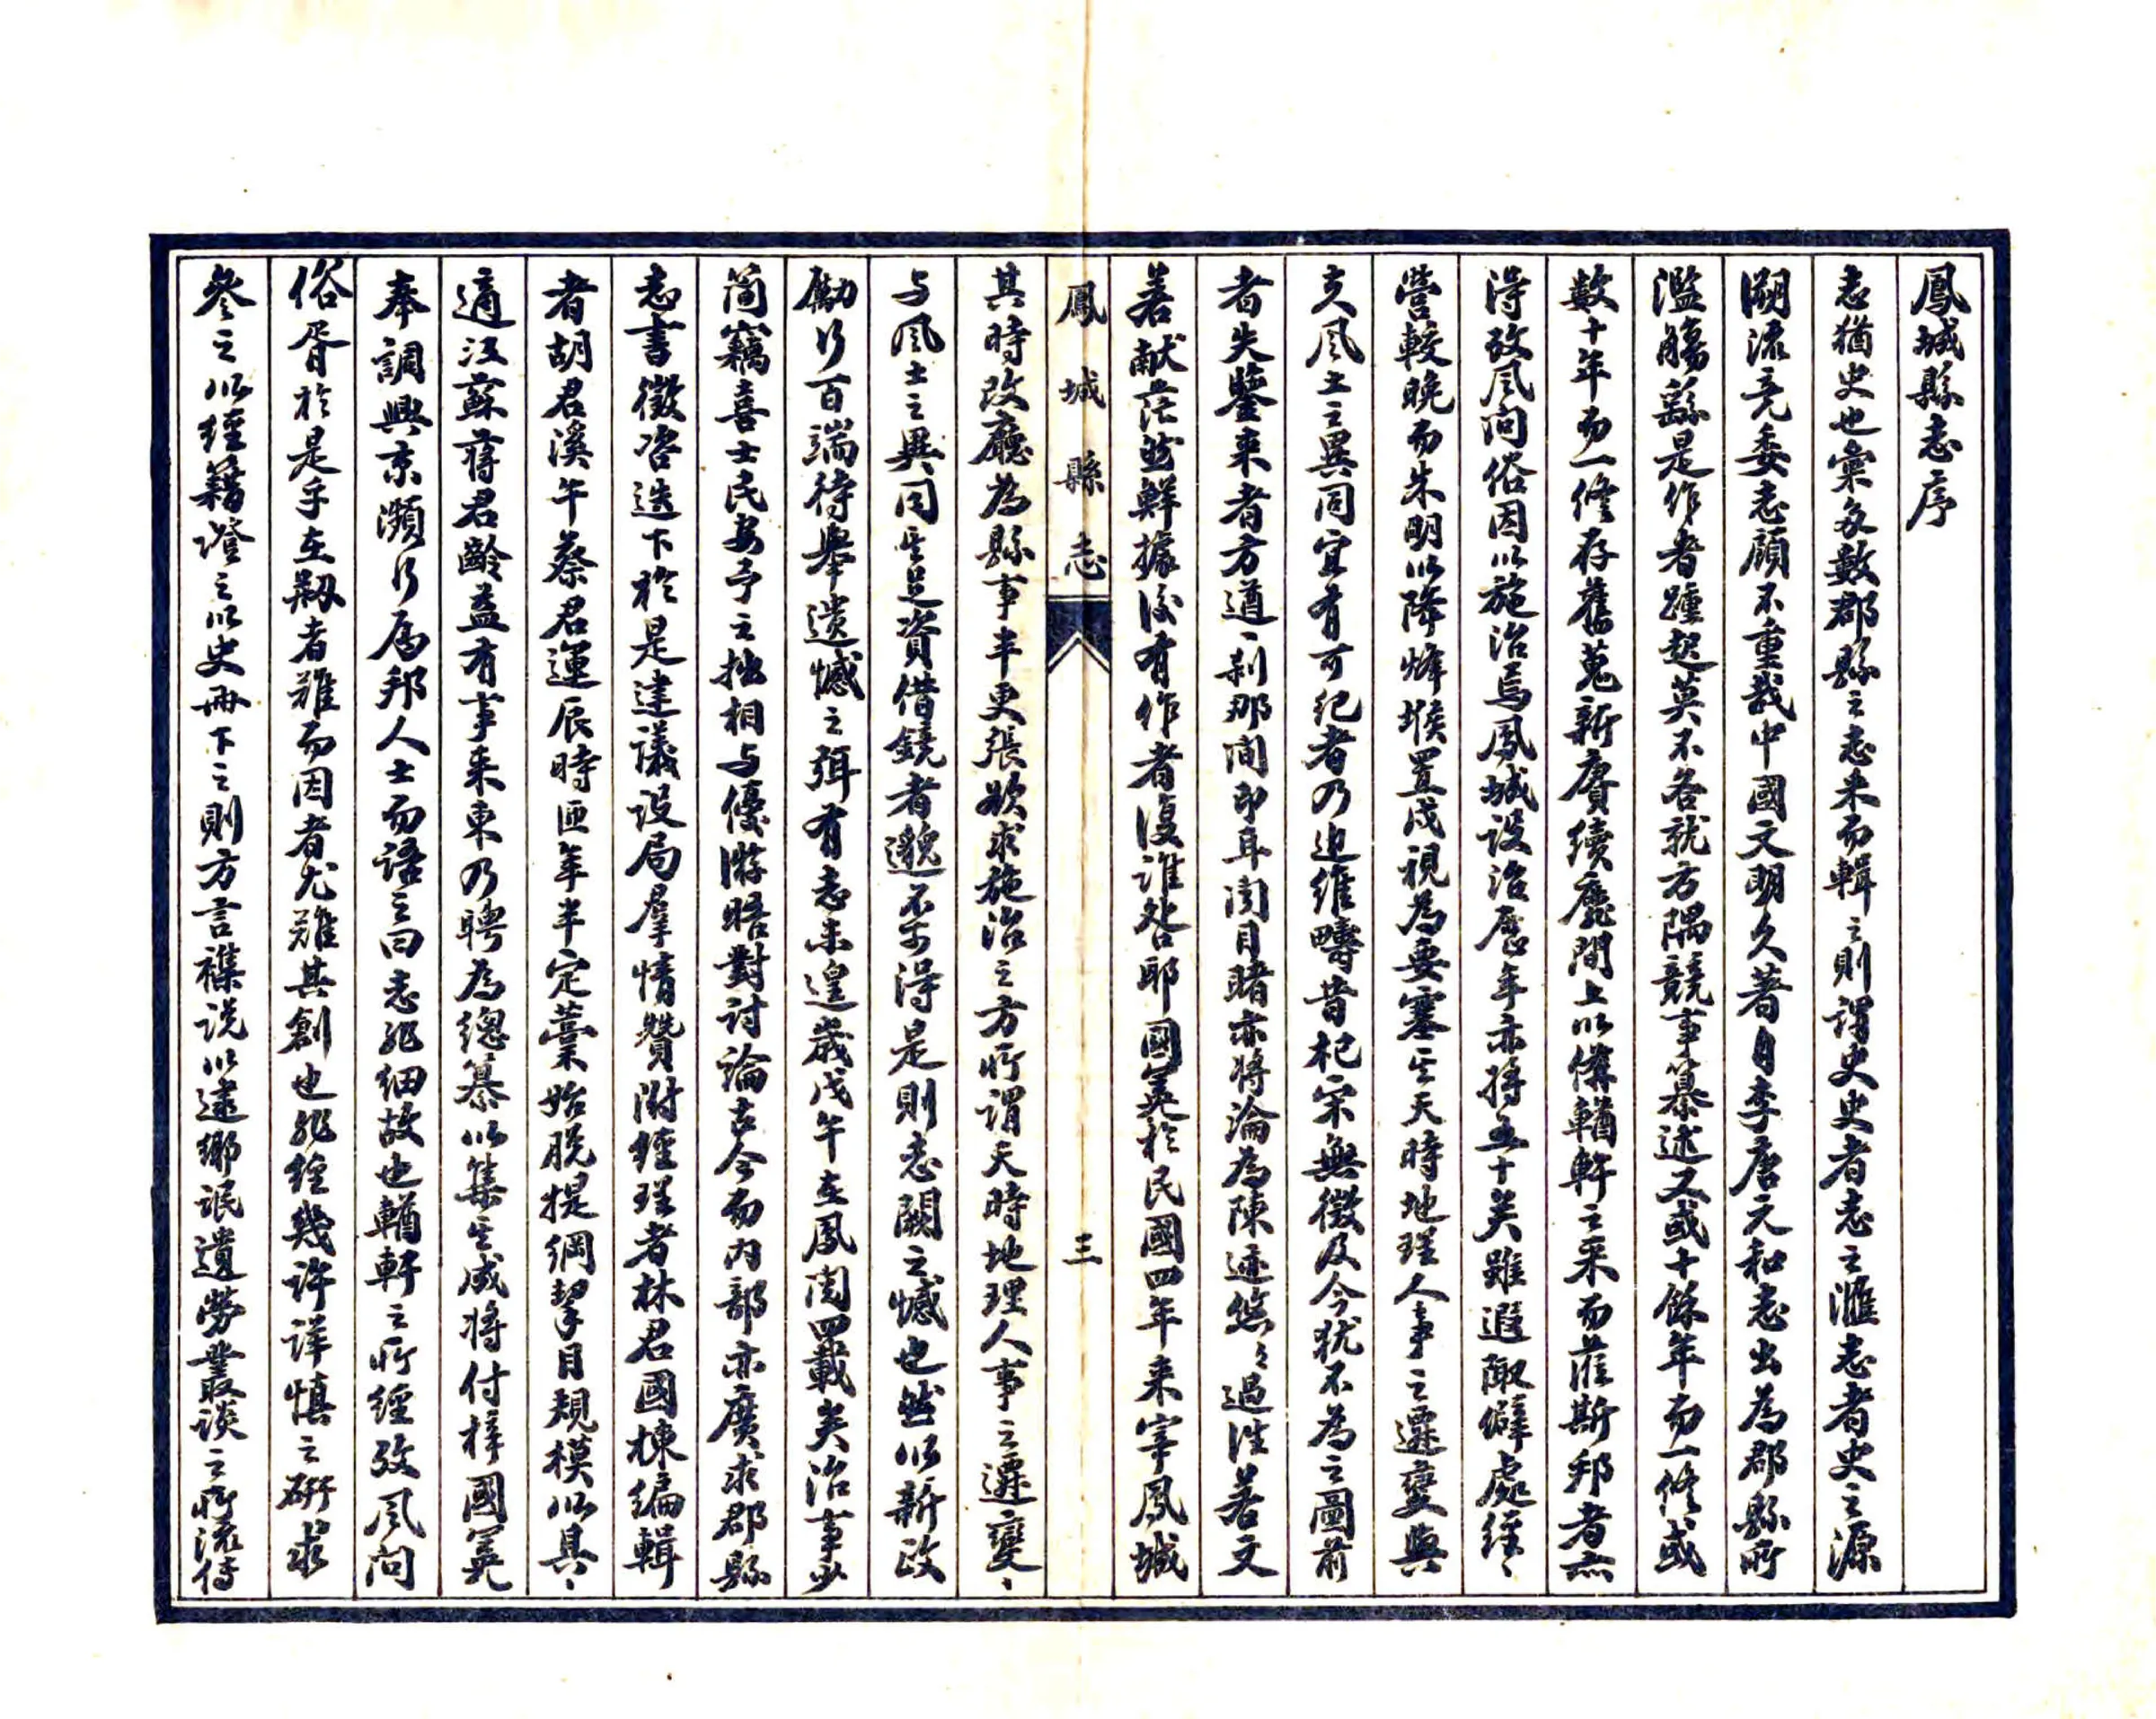 鳳城縣志序
志猶史也彙多數郡縣之志来而輯之則謂史史者志之滙志者史之源
溯流竟委志顧不重哉中國文明久著自李唐元和志出為郡縣所
濫觴繇是作者踵起莫不各就方隅競事纂述又或十餘年而一修或
数十年而一修存舊蒐新賡續靡間上以備輶軒之采而蒞斯邦者亦
得攷风问俗因以施治焉鳳城设治歷年亦将五十矣雖遐陬僻處經
營較晚而朱明以降烽堠置戍視為要塞其天時地理人事之遷變與
夫风土之異同宜有可纪者乃追維疇昔杞宋無徵及今犹不為之圖前
者失鑒来者方遒刹那间即耳闻目睹亦将淪為陳迹悠ミ過往若文
若献茫然鮮據後有作者復誰咎耶國英於民國四年来宰鳳城
鳳城縣志 三
其時改廳為縣事半更張欲求施治之方所謂天時地理人事之遷變
与风土之異同其足資借鏡者邈不可得是則志闕之憾也然以新政
勵行百端待舉遺憾之弭有志未遑歲戊午在鳳閱四載矣治事少
简竊喜士民安予之拙相与優游晤對討論古今而内部亦廣求郡縣
志書徵咨迭下於是建議设局羣情贊附經理者林君國棟編輯
者胡君溪午蔡君運辰時匝年半定藁始脱提綱挈目规模以具
適江蘇蒋君齡益有事来東乃聘為總纂以集其成将付梓國英
奉調興京瀕行属邦人士而語之曰志非细故也輶軒之所經攷风问
俗胥於是乎在剏者難而因者尤難其創也非經幾许详慎之研求
參之以經籍證之以史册下之則方言襍说以逮鄉氓遺勞叢谈之所流传